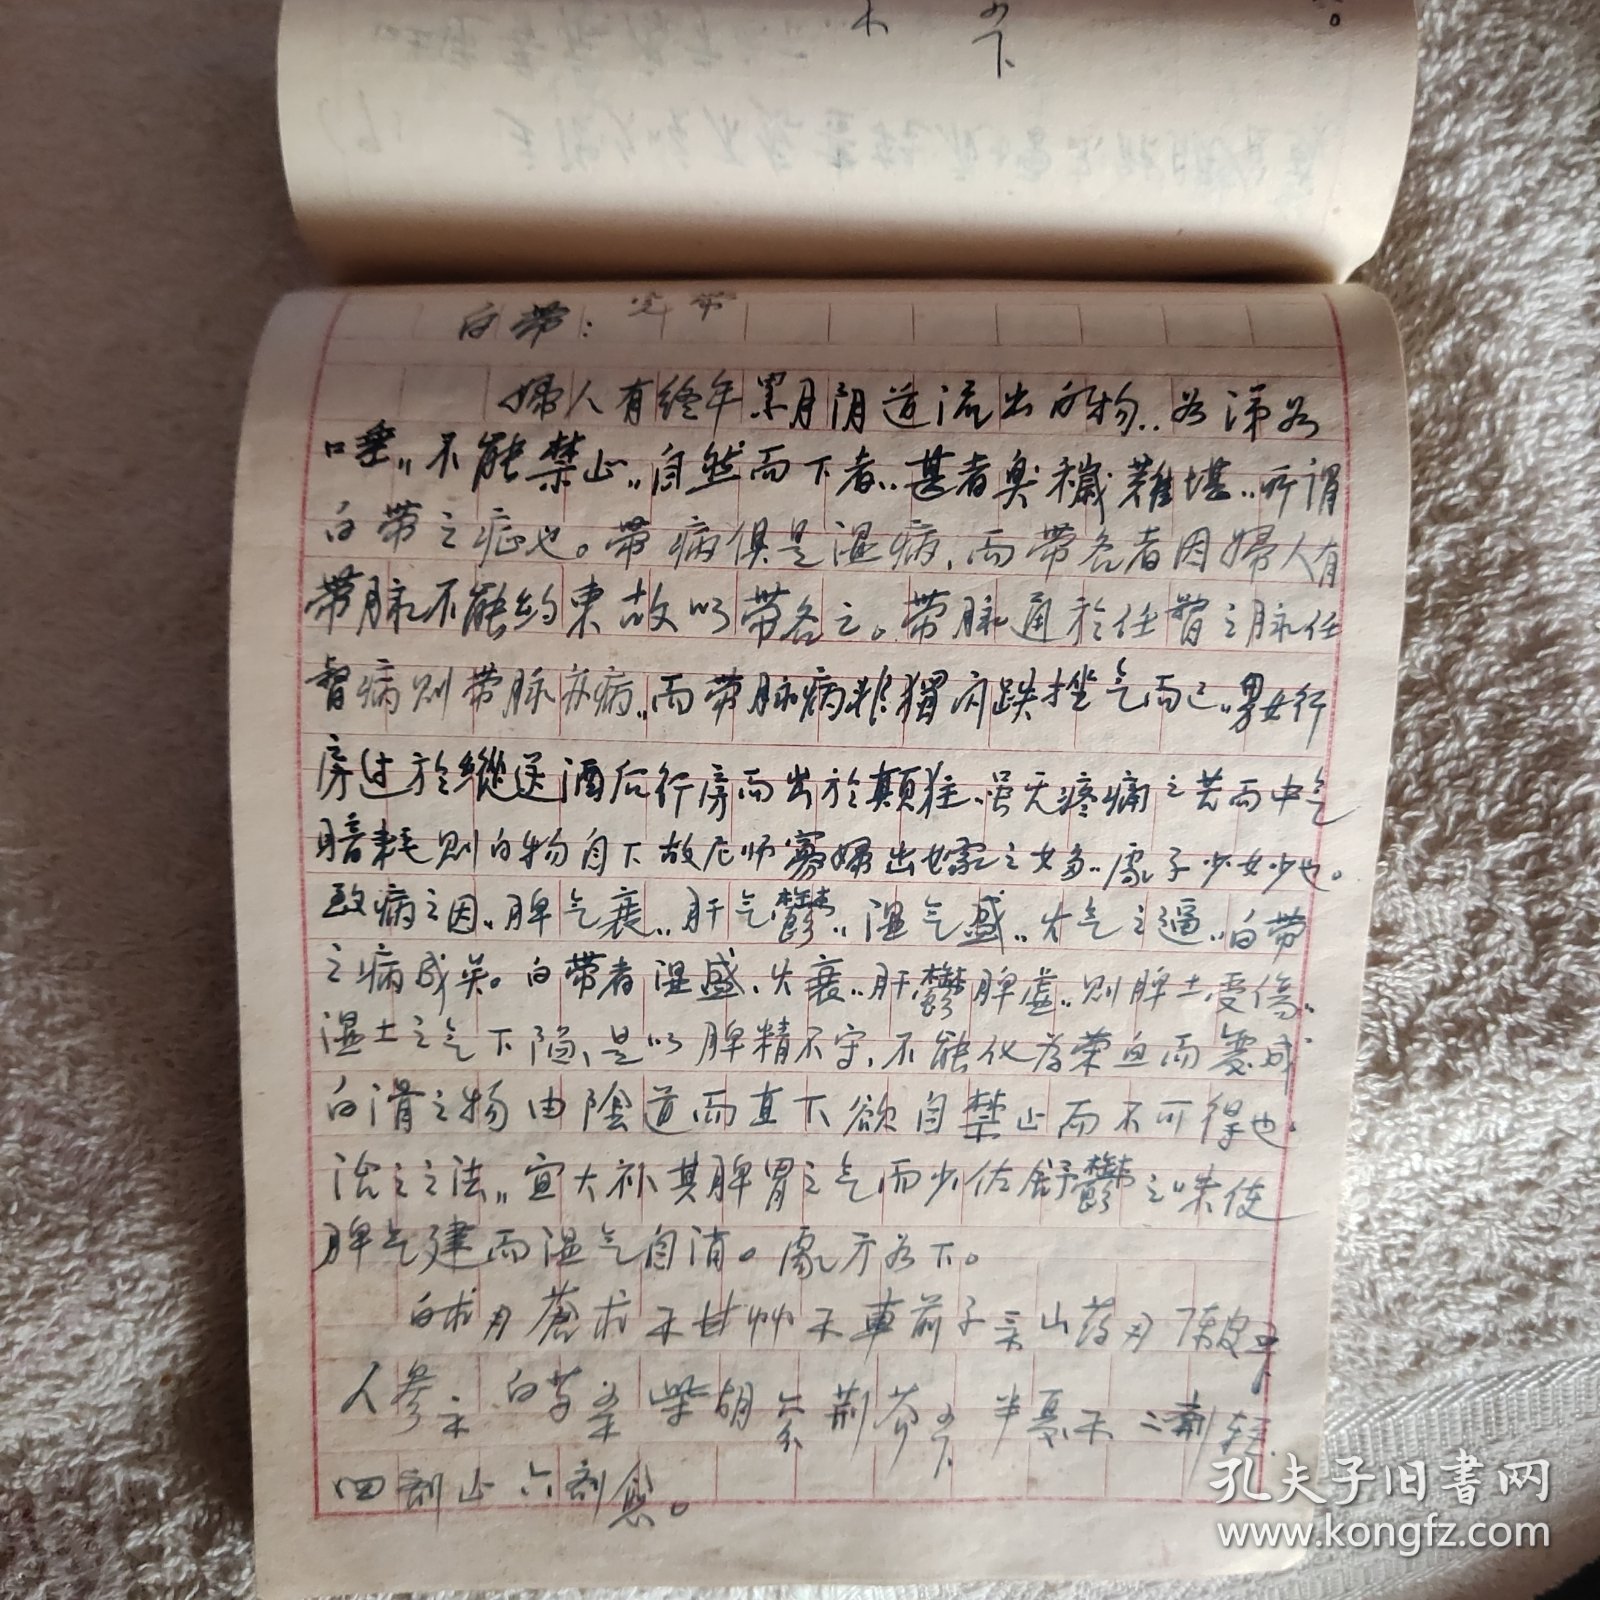 白带：完带
婦人有终年累月阴道流出白物，为涕为
唾，不能禁止，自然而下者，甚者臭穢難堪，所谓
白带之症也。带病俱是湿病，而带名者因婦人有
带脉不能约束故以带名之。带脉通於任督之脉任
督病则带脉亦病，而带脉病非獨闪跌挫气而已，男女行
房过於縱送酒后行房而出於顛狂，虽无疼痛之苦而中气
暗耗则白物自下故尼师寡婦出嫁之女多，處子少女少也。
致病之因，脾气衰，肝气鬱，湿气盛，火气之逼，白带
之病成矣。白带者湿盛、火衰，肝鬱脾虚，则脾土受傷，
湿土之气下陷、是以脾精不守，不能化为荣血而变成
白滑之物由陰道而直下欲自禁止而不可得也。
治之之法，宜大补其脾胃之气而少佐舒鬱之味使
脾气建而湿气自消。處方为下。
白术 蒼术 甘艸 車前子 山药 陈皮
人参 白芍 柴胡 荊芥 半夏 二劑轻
四剂止六剂愈。
孔夫子旧书网
www.kongfz.com